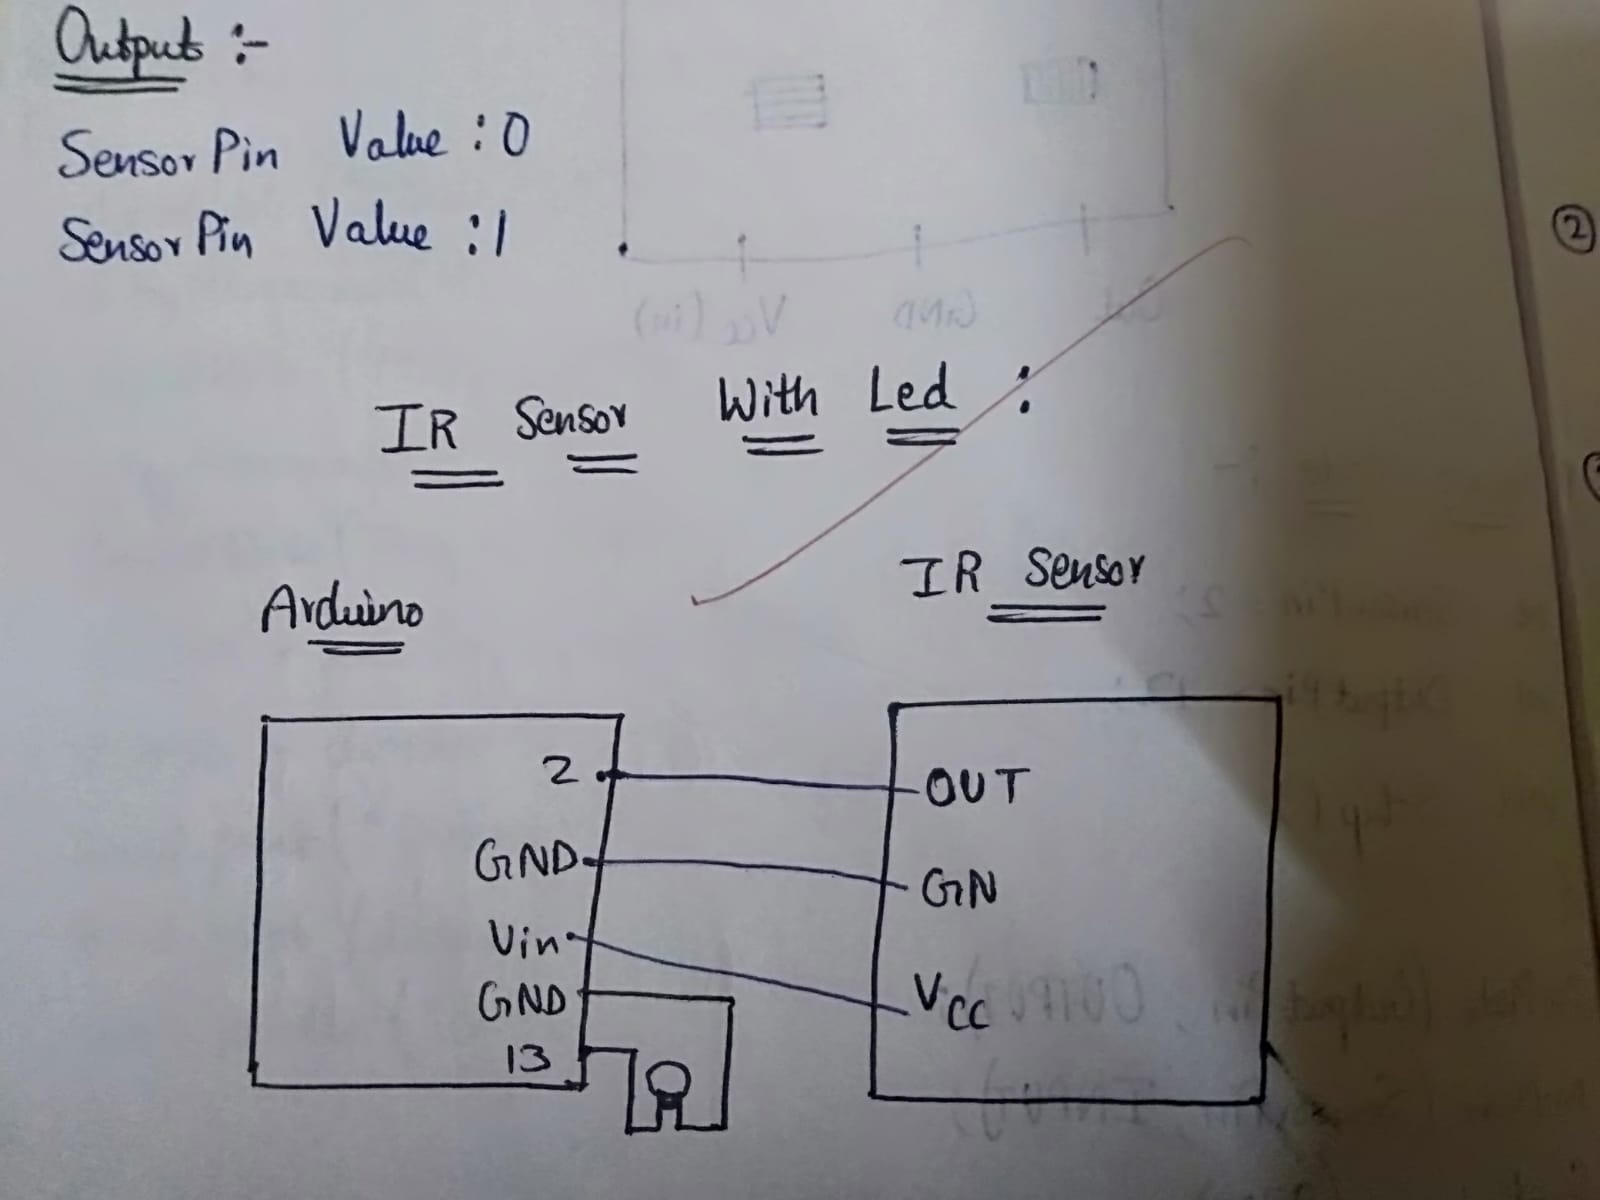 Output :-
Sensor Pin Value : 0
Sensor Pin Value : 1
IR Sensor With Led :
Arduino
IR Sensor
2
OUT
GND
GN
Vin
VCC
GND
13
②